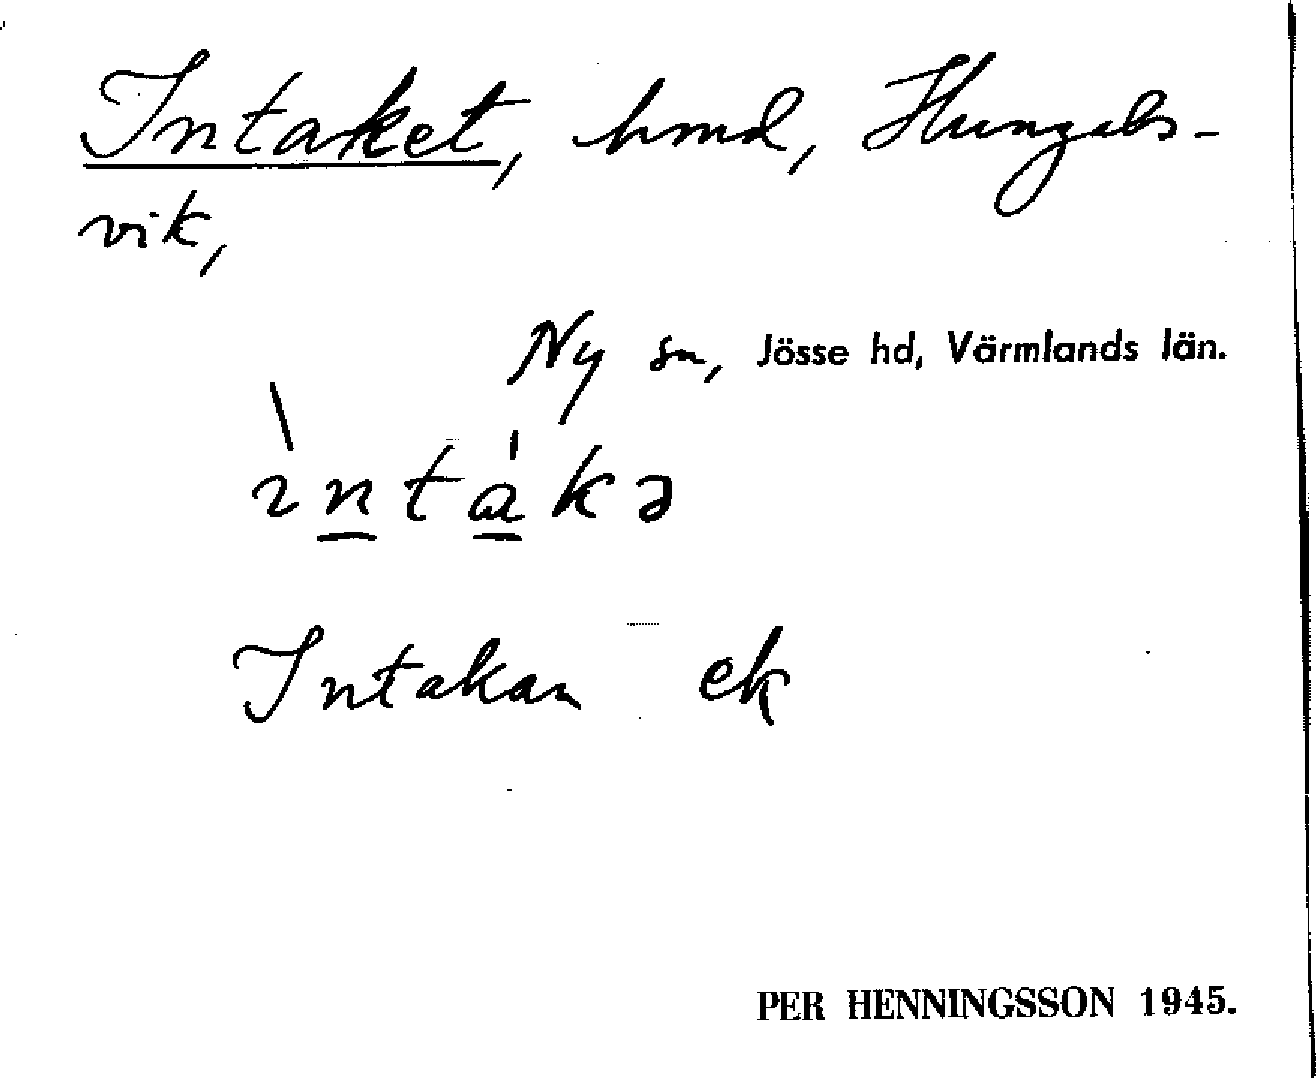 Intaket, hmd, Hungals-
vik,
Ny sn, Jösse hd, Värmlands län.
ìntákə
Intakan ek
PER HENNINGSSON 1945.